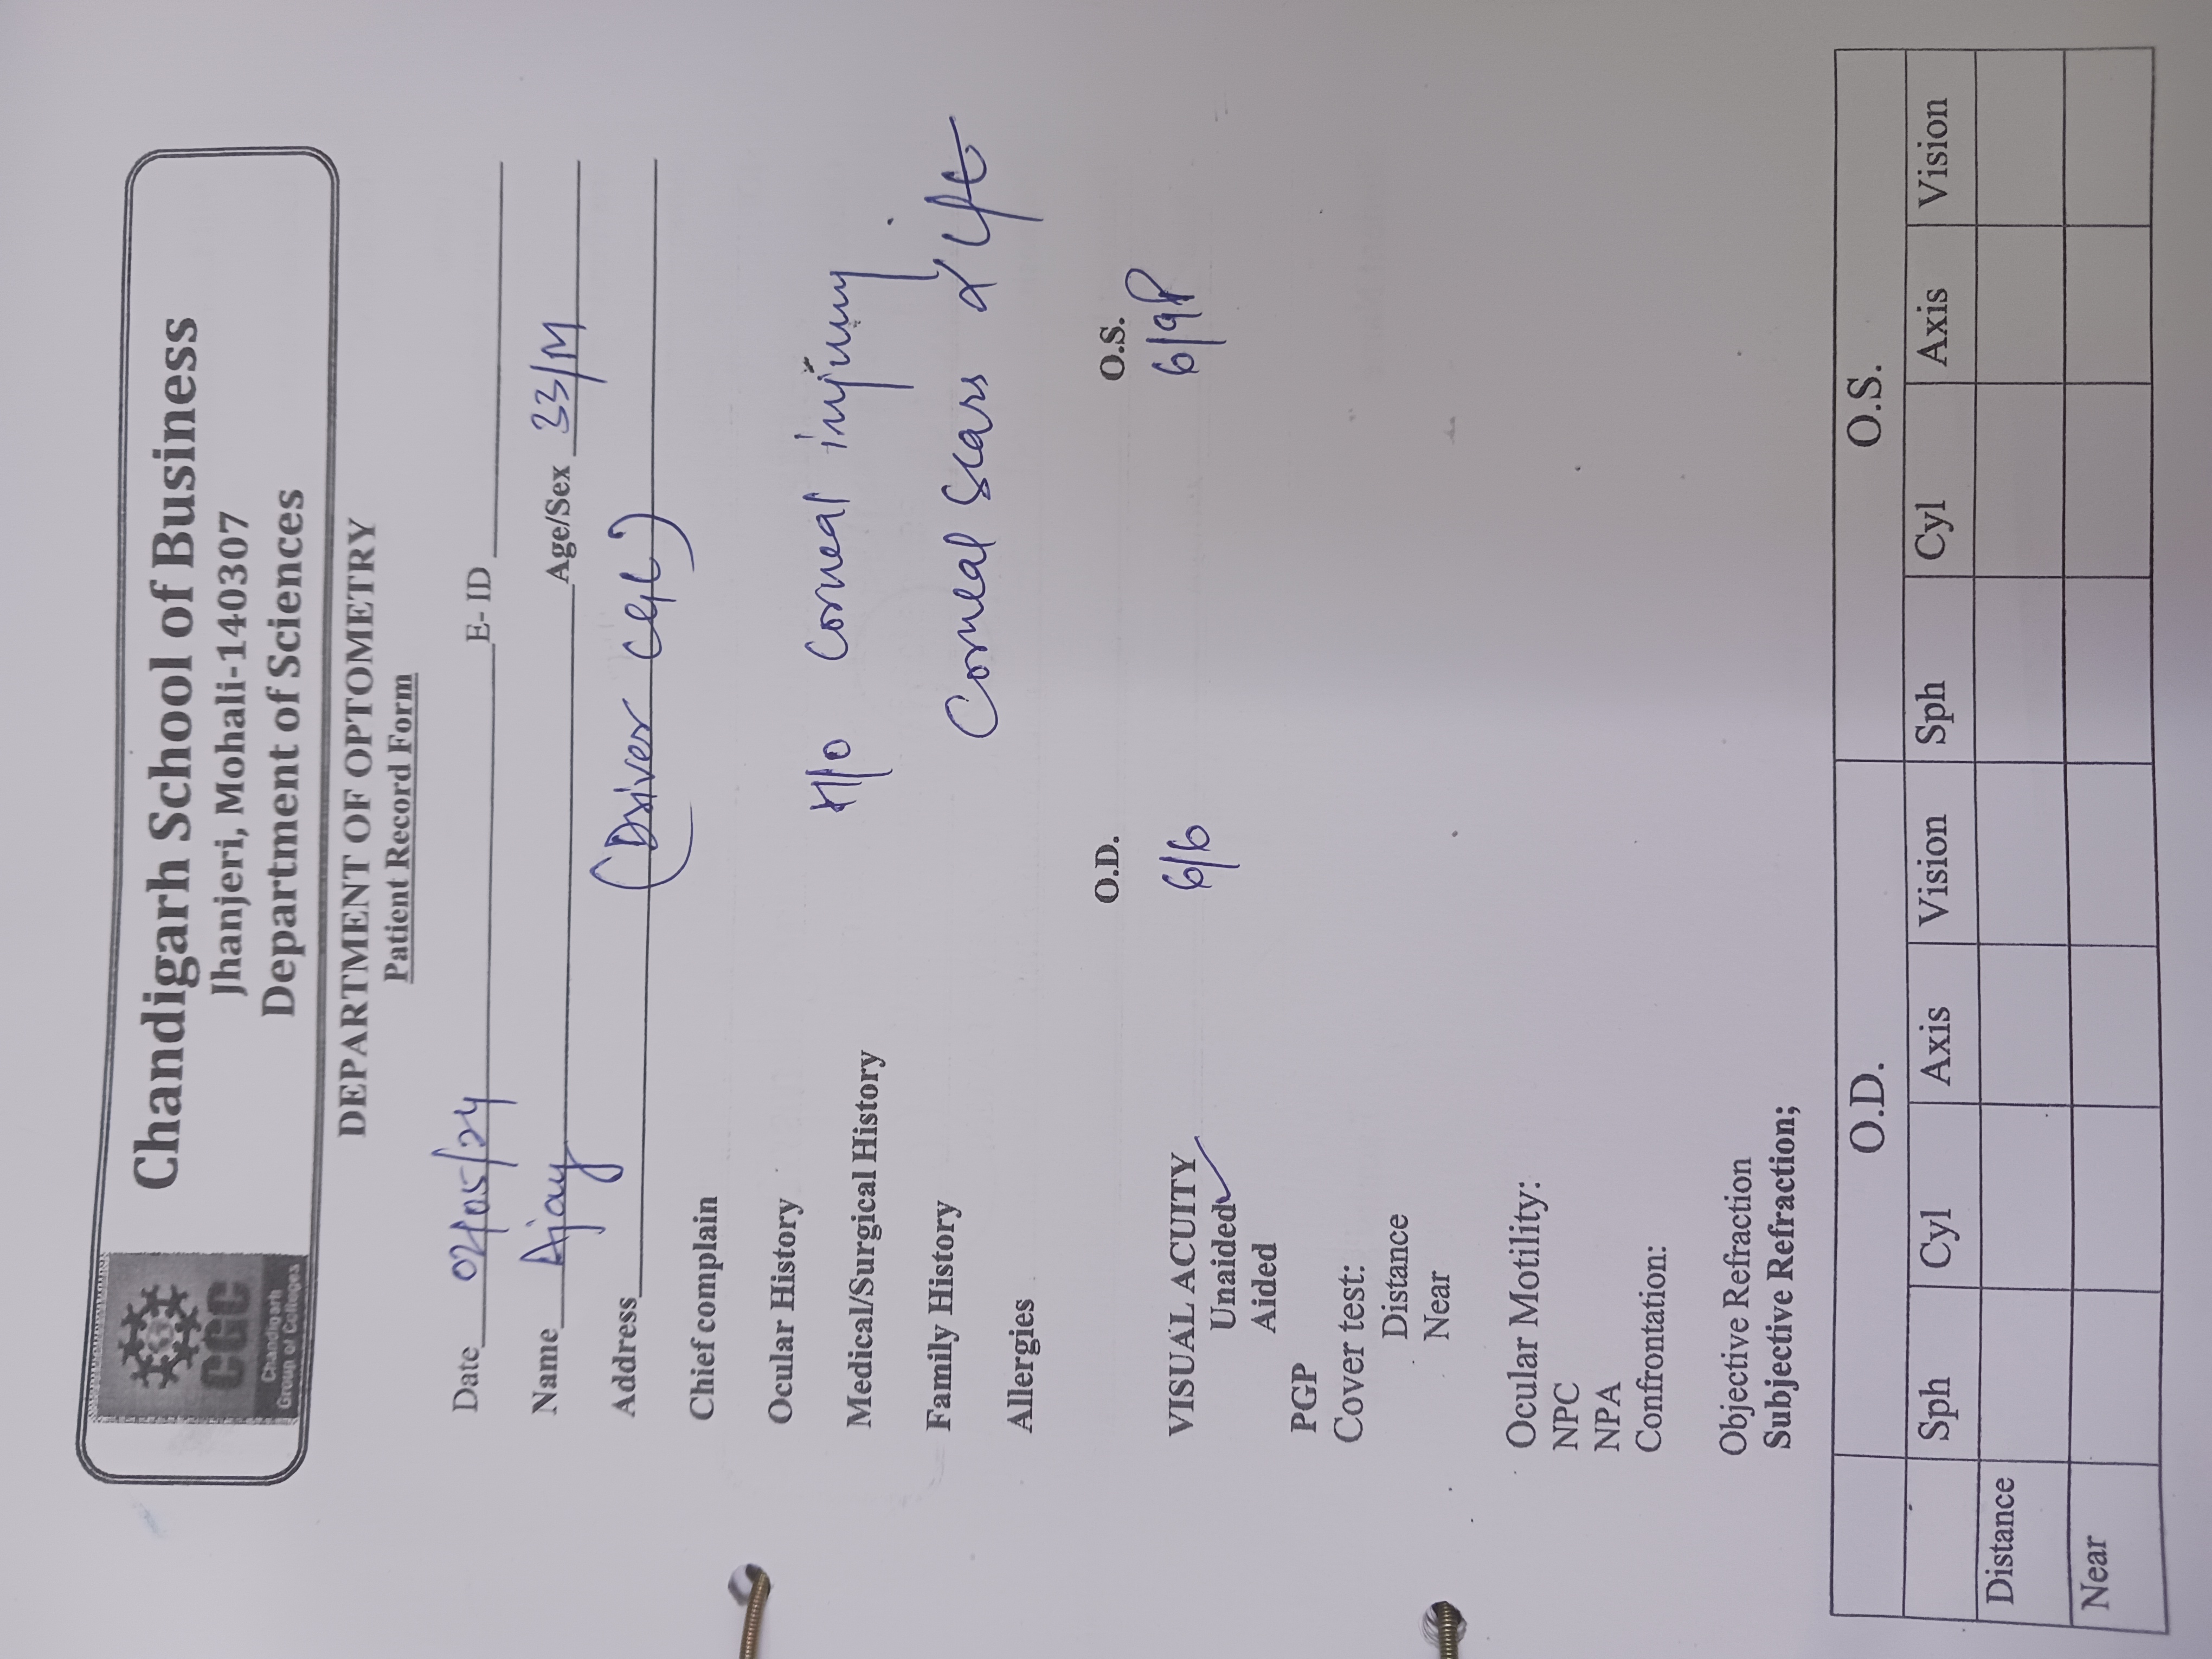 CGC
Chandigarh
Group of Colleges
Chandigarh School of Business
Jhanjeri, Mohali-140307
Department of Sciences
DEPARTMENT OF OPTOMETRY
Patient Record Form
Date 02/05/24 E- ID
Name Ajay Age/Sex 33/M
Address (Driver CGC)
Chief complain
Ocular History
H/o Corneal injury
Medical/Surgical History
Family History
Corneal Scars
Allergies
O.D. O.S.
VISUAL ACUITY 6/6 6/9P
Unaided ✓
Aided
PGP
Cover test:
Distance
Near
Ocular Motility:
NPC
NPA
Confrontation:
Objective Refraction
Subjective Refraction;
O.D. O.S.
Sph Cyl Axis Vision Sph Cyl Axis Vision
Distance
Near